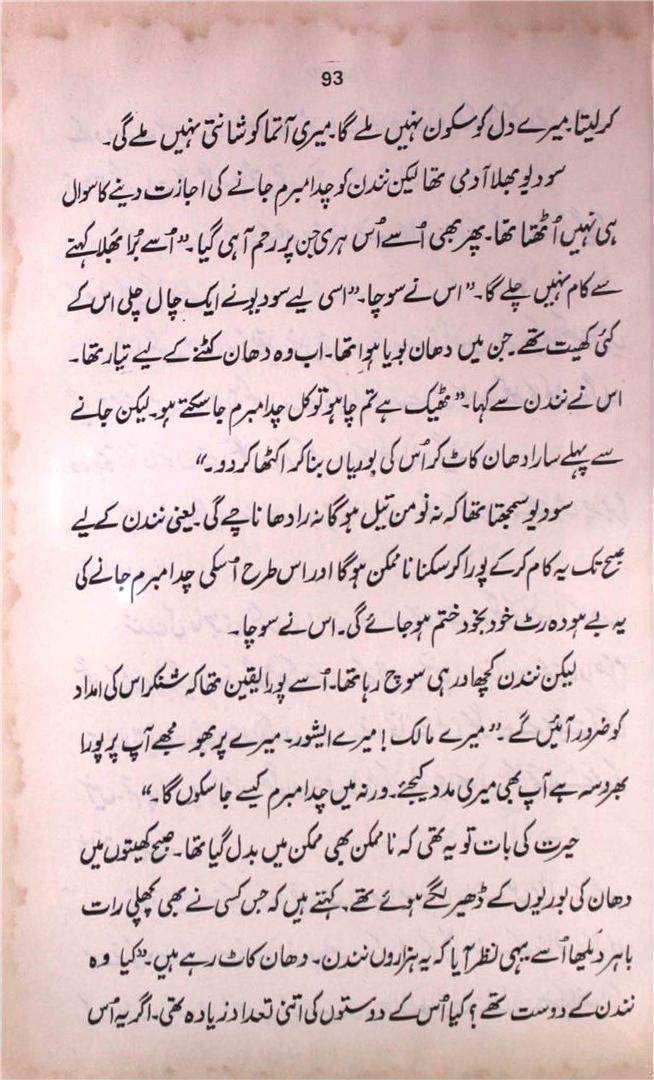 93
کرلیتا۔ میرے دل کو سکون نہیں ملے گا۔ میری آتما کو شانتی نہیں ملے گی۔
سودیو بھلا آدمی تھا لیکن نندن کو چدامبرم جانے کی اجازت دینے کا سوال
ہی نہیں اُٹھتا تھا۔ پھر بھی اُسے اُس ہری جن پر رحم آہی گیا۔ ”اُسے بُرا بھلا کہتے
سے کام نہیں چلے گا۔“ اس نے سوچا۔ ”اسی لیے سودیو نے ایک چال چلی اس کے
کئی کھیت تھے۔ جن میں دھان بویا ہوا تھا۔ اب وہ دھان کٹنے کے لیے تیار تھا۔
اس نے نندن سے کہا۔ ”ٹھیک ہے تم چاہو تو کل چدامبرم جا سکتے ہو۔ لیکن جانے
سے پہلے سارا دھان کاٹ کر اُس کی بوریاں بنا کر اکٹھا کر دو۔“
سودیو سمجھتا تھا کہ نہ نومن تیل ہوگا نہ رادھا ناچے گی یعنی نندن کے لیے
صبح تک یہ کام کرکے پورا کرسکنا ناممکن ہوگا اور اس طرح اُسکی چدامبرم جانے کی
یہ بے ہودہ رٹ خود بخود ختم ہوجائے گی۔ اس نے سوچا۔
لیکن نندن کچھ اور ہی سوچ رہا تھا۔ اُسے پورا یقین تھا کہ شنکر اس کی امداد
کو ضرور آئیں گے۔ ”میرے مالک! میرے ایشور۔ میرے پربھو مجھے آپ پر پورا
بھروسہ ہے آپ بھی میری مدد کیجئے۔ ورنہ میں چدامبرم کیسے جاسکوں گا۔“
حیرت کی بات تو یہ تھی کہ ناممکن بھی ممکن میں بدل گیا تھا۔ صبح کھیتوں میں
دھان کی بوریوں کے ڈھیر لگے ہوئے تھے۔ کہتے ہیں کہ جس کسی نے بھی پچھلی رات
باہر دیکھا اُسے یہی نظر آیا کہ یہ ہزاروں نندن۔ دھان کاٹ رہے ہیں۔ ”کیا وہ
نندن کے دوست تھے؟ کیا اُس کے دوستوں کی اتنی تعداد زیادہ تھی۔ اگر یہ اُس